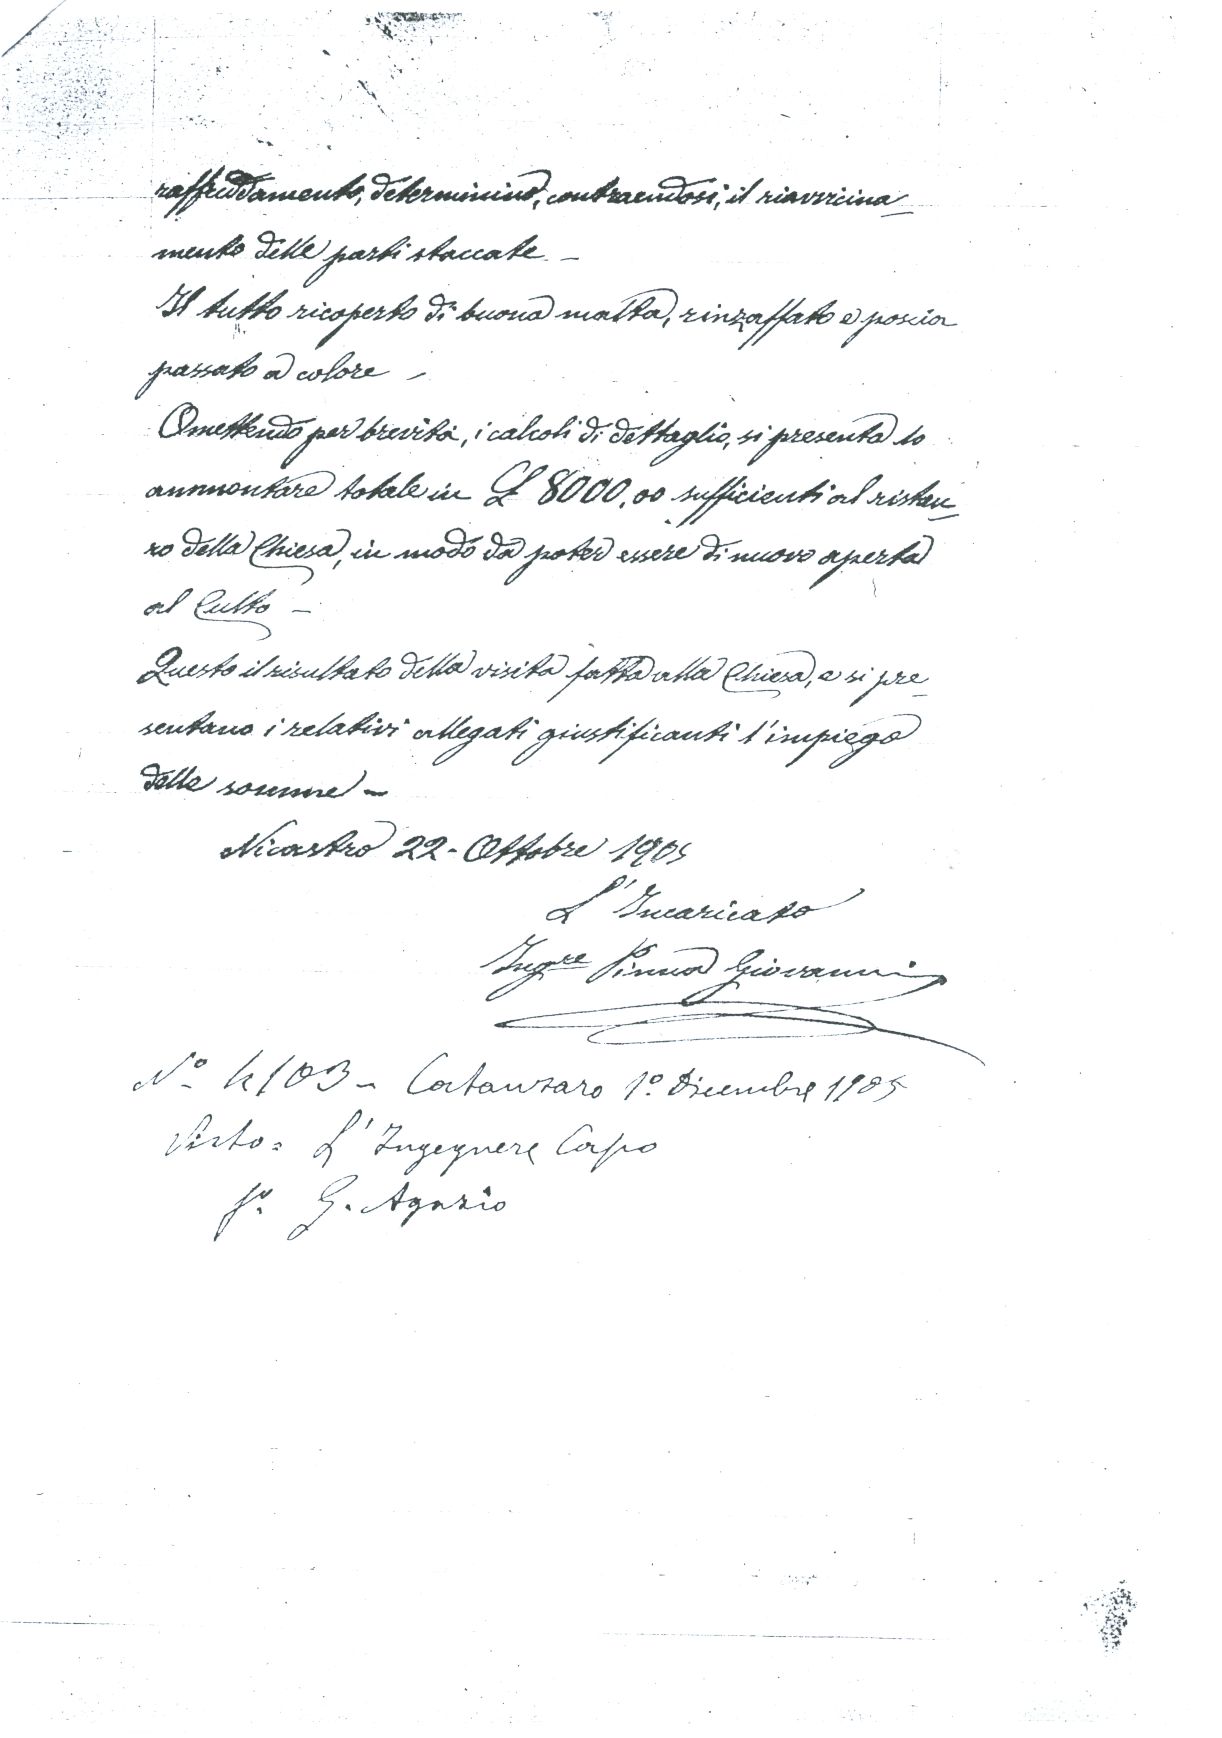 raffreddamento, determinino, contraendosi, il riavvicina_
mento delle parti staccate. _
Il tutto ricoperto di buona malta, rinzaffato e poscia
passato a colore _
Omettendo per brevità, i calcoli di dettaglio, si presenta lo
ammontare totale in £ 8000,00 sufficienti al ristau_
ro della Chiesa, in modo da poter essere di nuovo aperta
al Culto _
Questo il risultato della visita fatta alla Chiesa, e si pre_
sentano i relativi allegati giustificanti l'impiego
delle somme _
Nicastro 22 - Ottobre 1905
L'Incaricato
Ingre Pinna Giovanni
No 4103 - Catanzaro 1o Dicembre 1905
Visto = L'Ingegnere Capo
fo. G. Agazio